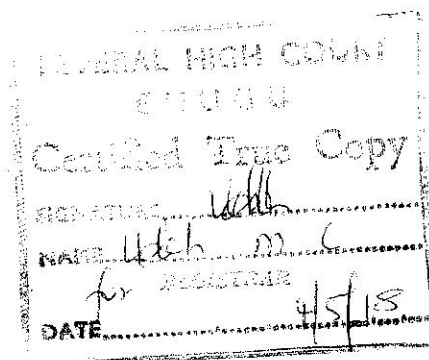 FEDERAL HIGH COURT
ENUGU
Certified True Copy
SIGNATURE
NAME Udeh M C
for REGISTRAR
DATE 4/5/18